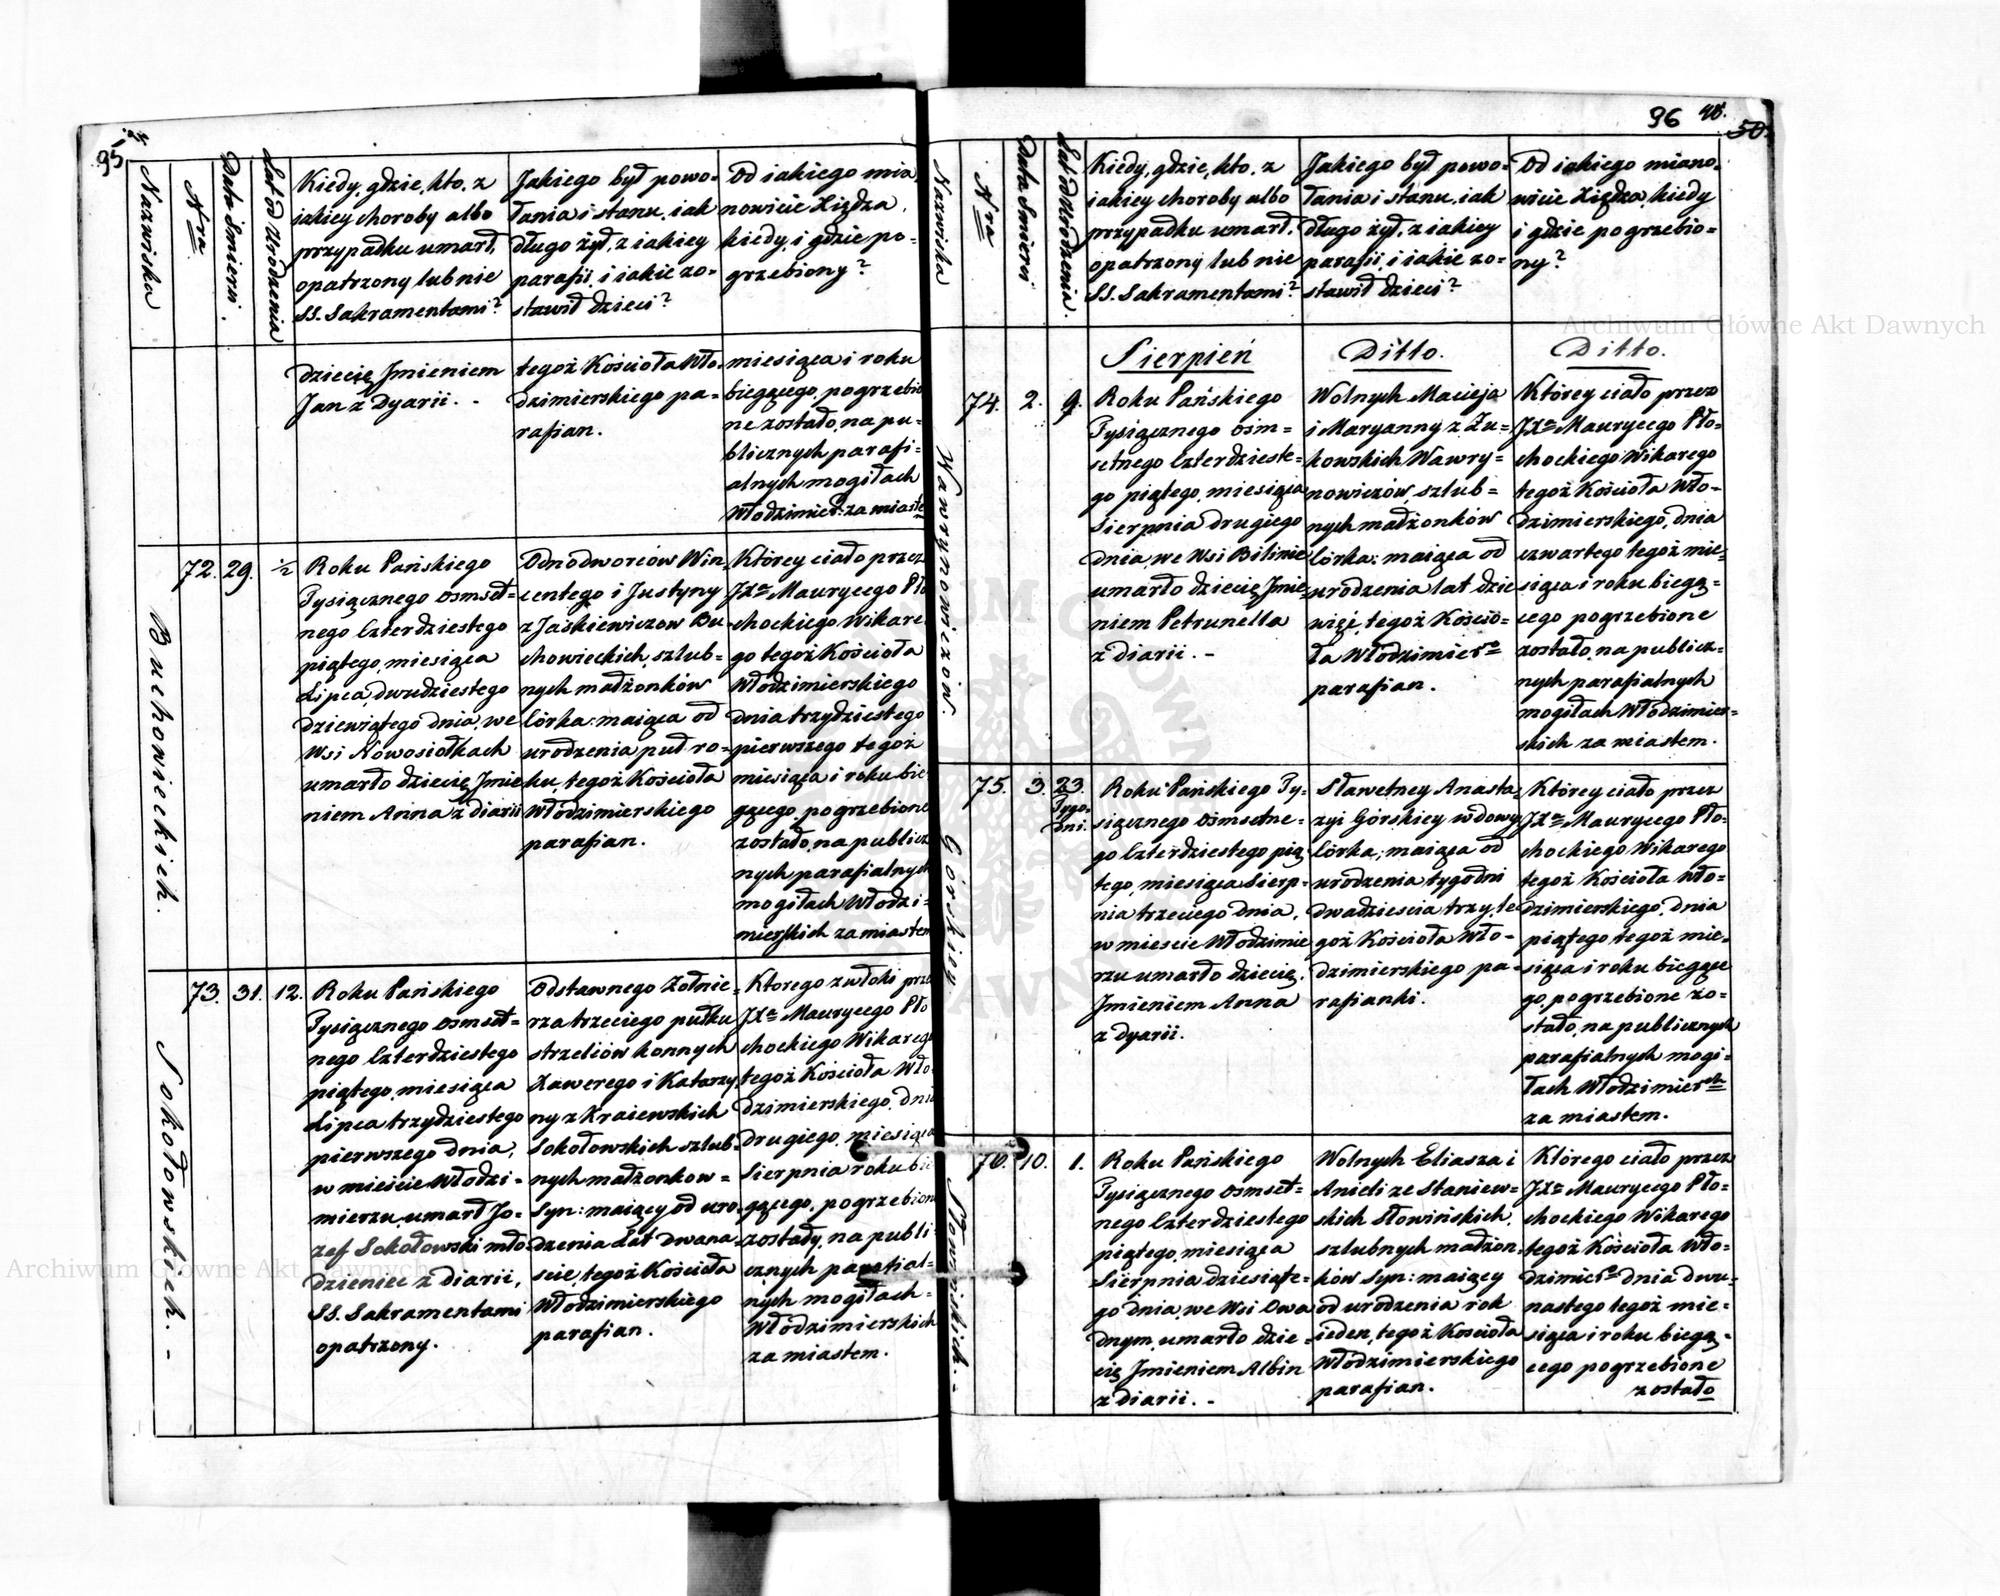 95
Nazwiska
Nra
Data Śmierci.
Lat od Urodzenia
Kiedy, gdzie, kto, z
iakiey choroby albo
przypadku umarł,
opatrzony lub nie
SS. Sakramentami?
Jakiego był powo=
łania i stanu, iak
długo żył, z iakiey
parafii i iakie zo=
stawił dzieci?
Od iakiego mia
nowicie Xiędza,
kiedy, i gdzie po=
grzebiony?
dziecię Jmieniem
Jan z Dyarii. -
tegoż Kościoła Wło=
dzimierskiego pa=
rafian.
miesiąca i roku
biegącego, pogrzebio
ne zostało, na pu=
blicznych parafi=
alnych mogiłach
Włodzimier: za miaste
Buchowieckich.
72.
29.
½
Roku Pańskiego
Tysiącznego osmset=
nego Czterdziestego
piątego, miesiąca
Lipca, dwudziestego
dziewiątego dnia, we
Wsi Nowosiołkach
umarło dziecię Jmie
niem Anna z diarii
Odnodworców Win=
centego i Justyny
z Jaśkiewiczow Bu=
chowieckich, szlub=
nych małżonków
Córka: maiąca od
urodzenia puł ro=
ku, tegoż Kościoła
Włodzimierskiego
parafian.
Którey ciało przez
JXa Maurycego Pło
chockiego Wikare
go tegoż Kościoła
Włodzimierskiego
dnia trzydziestego
pierwszego tegoż
miesiąca i roku bie
gącego, pogrzebione
zostało, na publicz
nych parafialnych
mogiłach Włodzi=
mierskich za miastem
Sokołowskich. -
73.
31.
12.
Roku Pańskiego
Tysiącznego osmset=
nego Czterdziestego
piątego miesiąca
Lipca trzydziestego
pierwszego dnia,
w mieście Włodzi=
mierzu, umarł Jó=
zef Sokołowski mło
dzieniec z diarii,
SS. Sakramentami
opatrzony.
Odstawnego Żołnie=
rza trzeciego pułku
strzelców konnych
Xawerego i Katarzy
ny z Kraiewskich
Sokołowskich szlub=
nych małżonkow=
Syn: maiący od uro=
dzenia Lat dwana
ście, tegoż Kościoła
Włodzimierskiego
parafian.
Ktorego zwłoki prze
JXa Maurycego Pło
chockiego Wikarego
tegoż Kościoła Wło
dzimierskiego, dnia
drugiego, miesiąca
Sierpnia roku bie
gącego, pogrzebione
zostały, na publi
cznych parafial=
nych mogiłach=
Włodzimierskich
za miastem.
96
48.
50.
Nazwiska
Nra
Data Śmierci
Lat od Urodzenia.
Kiedy, gdzie, kto, z
iakiey choroby albo
przypadku umarł,
opatrzony lub nie
SS. Sakramentami?
Jakiego był powo=
łania i stanu, iak
długo żył, z iakiey
parafii, i iakie zo=
stawił dzieci?
Od iakiego miano=
wicie Xiędza, kiedy
i gdzie pogrzebio=
ny?
Sierpień
Ditto.
Ditto.
Wawrynowiczow.
74.
2.
9.
Roku Pańskiego
Tysiącznego osm=
setnego Czterdzieste=
go piątego, miesiąca
Sierpnia drugiego
dnia, we Wsi Bilinie
umarło dziecię Jmie=
niem Petrunella
z diarii. -
Wolnych Macieja
i Maryanny z Żu=
kowskich Wawry=
nowiczów, szlub=
nych małżonków
Córka: maiąca od
urodzenia lat dzie
więć, tegoż Kościo=
ła Włodzimierso
parafian.
Którey ciało przez
JXa Maurycego Pło=
chockiego Wikarego
tegoż Kościoła Wło=
dzimierskiego, dnia
czwartego tegoż mie=
siąca i roku biegą=
cego pogrzebione
zostało, na publicz=
nych parafialnych
mogiłach Włodzimier=
skich za miastem.
Górskiey.
75.
3.
23.
Tygo=
dni.
Roku Pańskiego Ty=
siącznego osmsetne=
go Czterdziestego pią
tego, miesiąca Sierp=
nia trzeciego dnia,
w mieście Włodzimie
rzu umarło dziecię,
Jmieniem Anna
z Dyarii.
Sławetney Anasta=
zyi Górskiey wdowy
Córka; maiąca od
urodzenia tygodni
dwadzieścia trzy, te
goż Kościoła Wło=
dzimierskiego pa=
rafianki.
Którey ciało przez
JXa Maurycego Pło=
chockiego Wikarego
tegoż Kościoła Wło=
dzimierskiego, dnia
piątego tegoż mie=
siąca i roku biegące
go, pogrzebione zo=
stało, na publicznych
parafialnych mogi=
łach Włodzimierch
za miastem.
Słowińskich. -
76.
10.
1.
Roku Pańskiego
Tysiącznego osmset=
nego Czterdziestego
piątego, miesiąca
Sierpnia dziesiąte=
go dnia, we Wsi Owa
dnym, umarło dzie=
cię Jmieniem Albin
z diarii. -
Wolnych Eliasza i
Anieli ze Staniew=
skich Słowińskich,
szlubnych małżon=
ków Syn: maiący
od urodzenia rok
ieden, tegoż Kościoła
Włodzimierskiego
parafian.
Którego ciało przez
JXa Maurycego Pło=
chockiego Wikarego
tegoż Kościoła Wło=
dzimierso dnia dwu=
nastego tegoż mie=
siąca i roku biegą=
cego pogrzebione
zostało
Archiwum Główne Akt Dawnych
Archiwum Główne Akt Dawnych